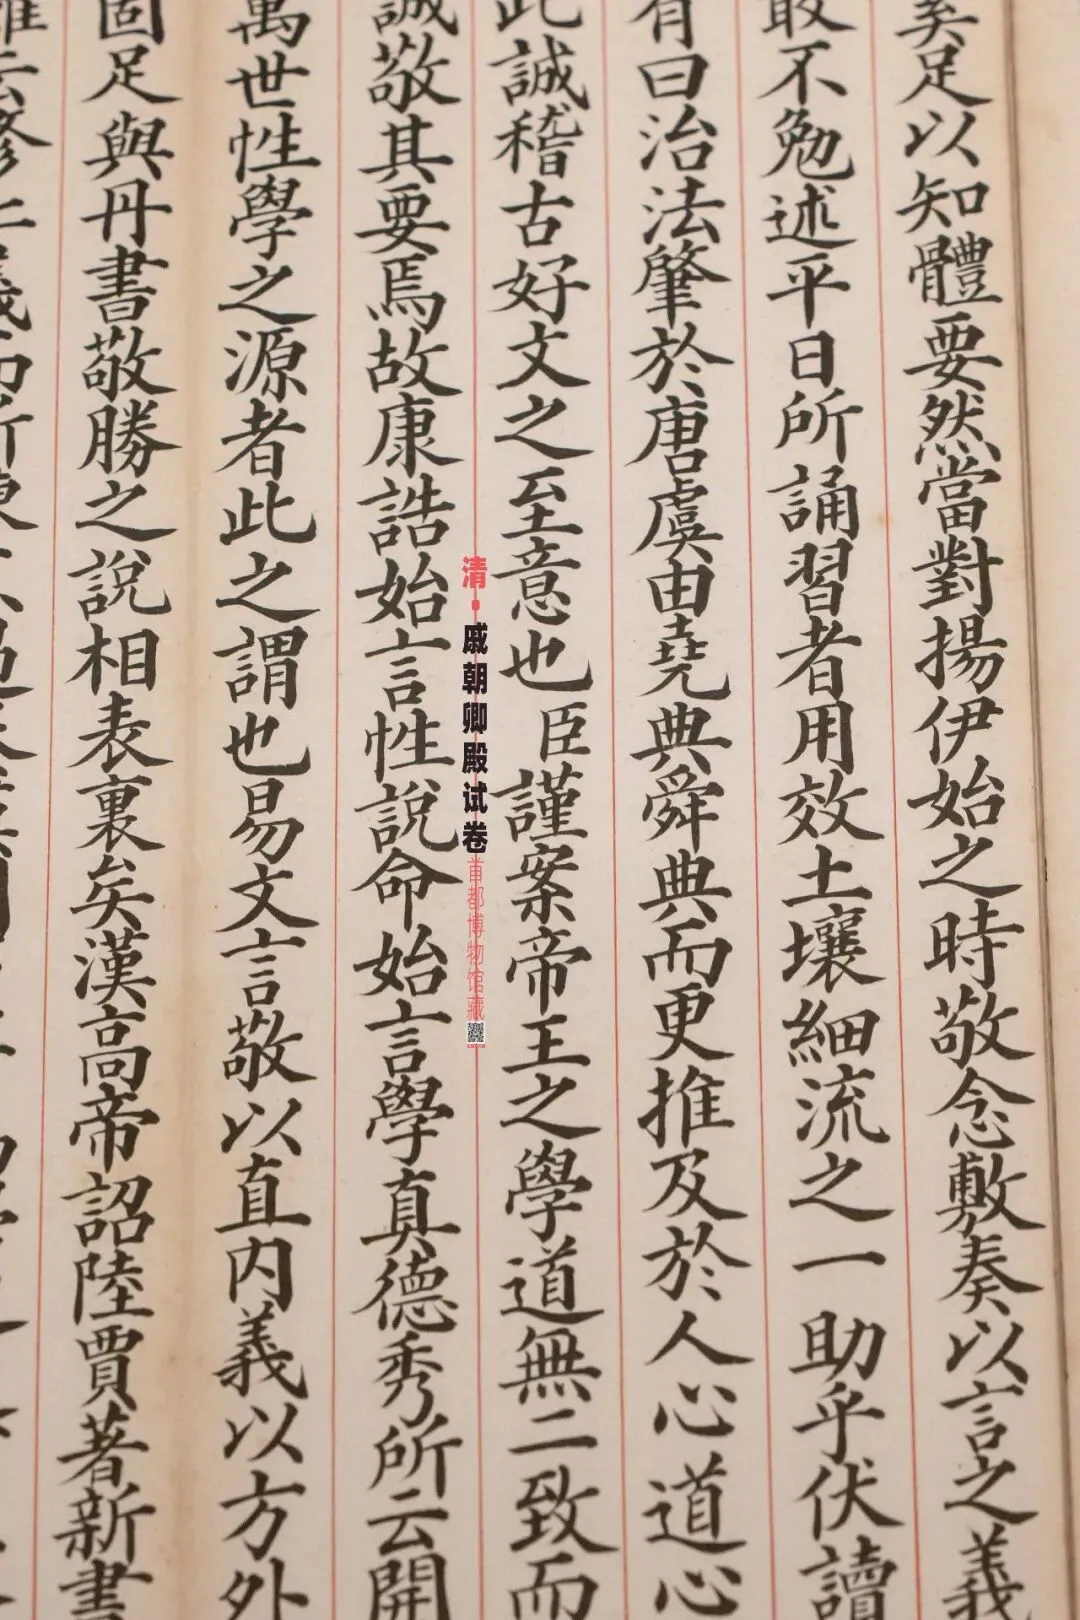 奚足以知體要然當對揚伊始之時敬念敷奏以言之義
敢不勉述平日所誦習者用效土壤細流之一助乎伏讀
有曰治法肇於唐虞由堯典舜典而更推及於人心道心
此誠稽古好文之至意也臣謹案帝王之學道無二致而
誠敬其要焉故康誥始言性說命始言學真德秀所云開
萬世性學之源者此之謂也易文言敬以直內義以方外
固足與丹書敬勝之說相表裏矣漢高帝詔陸賈著新書
清·戚朝卿殿试卷
首都博物馆藏